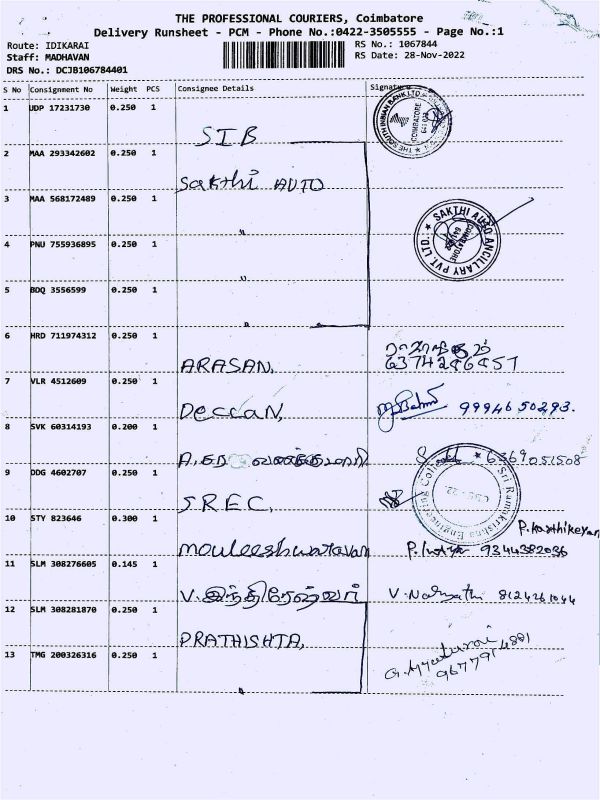 THE PROFESSIONAL COURIERS, Coimbatore
Delivery Runsheet - PCM - Phone No.:0422-3505555 - Page No.:1
Route: IDIKARAI RS No.: 1067844
Staff: MADHAVAN RS Date: 28-Nov-2022
DRS No.: DCJB106784401
S No Consignment No Weight PCS Consignee Details Signature
1 UDP 17231730 0.250 1 SIB
THE SOUTH INDIAN BANK LTD COIMBATORE
2 MAA 293342602 0.250 1 Sakthi AUTO
3 MAA 568172489 0.250 1 "
SAKTHI AUTO ANCILLARY PVT. LTD. COIMBATORE
4 PNU 755936895 0.250 1 "
5 BDQ 3556599 0.250 1 "
6 HRD 711974312 0.250 1 ARASAN,
7 VLR 4512609 0.250 1 DeccaN, 9994650293.
8 SVK 60314193 0.200 1 6369051508
9 DDG 4602707 0.250 1 SREC,
Sri Ramakrishna Engineering College
10 STY 823646 0.300 1 mouleeshwaravan 9344382036
P.Karthikeyan
11 SLM 308276605 0.145 1 V. 8124261044
12 SLM 308281870 0.250 1 PRATHISHTA,
13 TMG 200326316 0.250 1 "